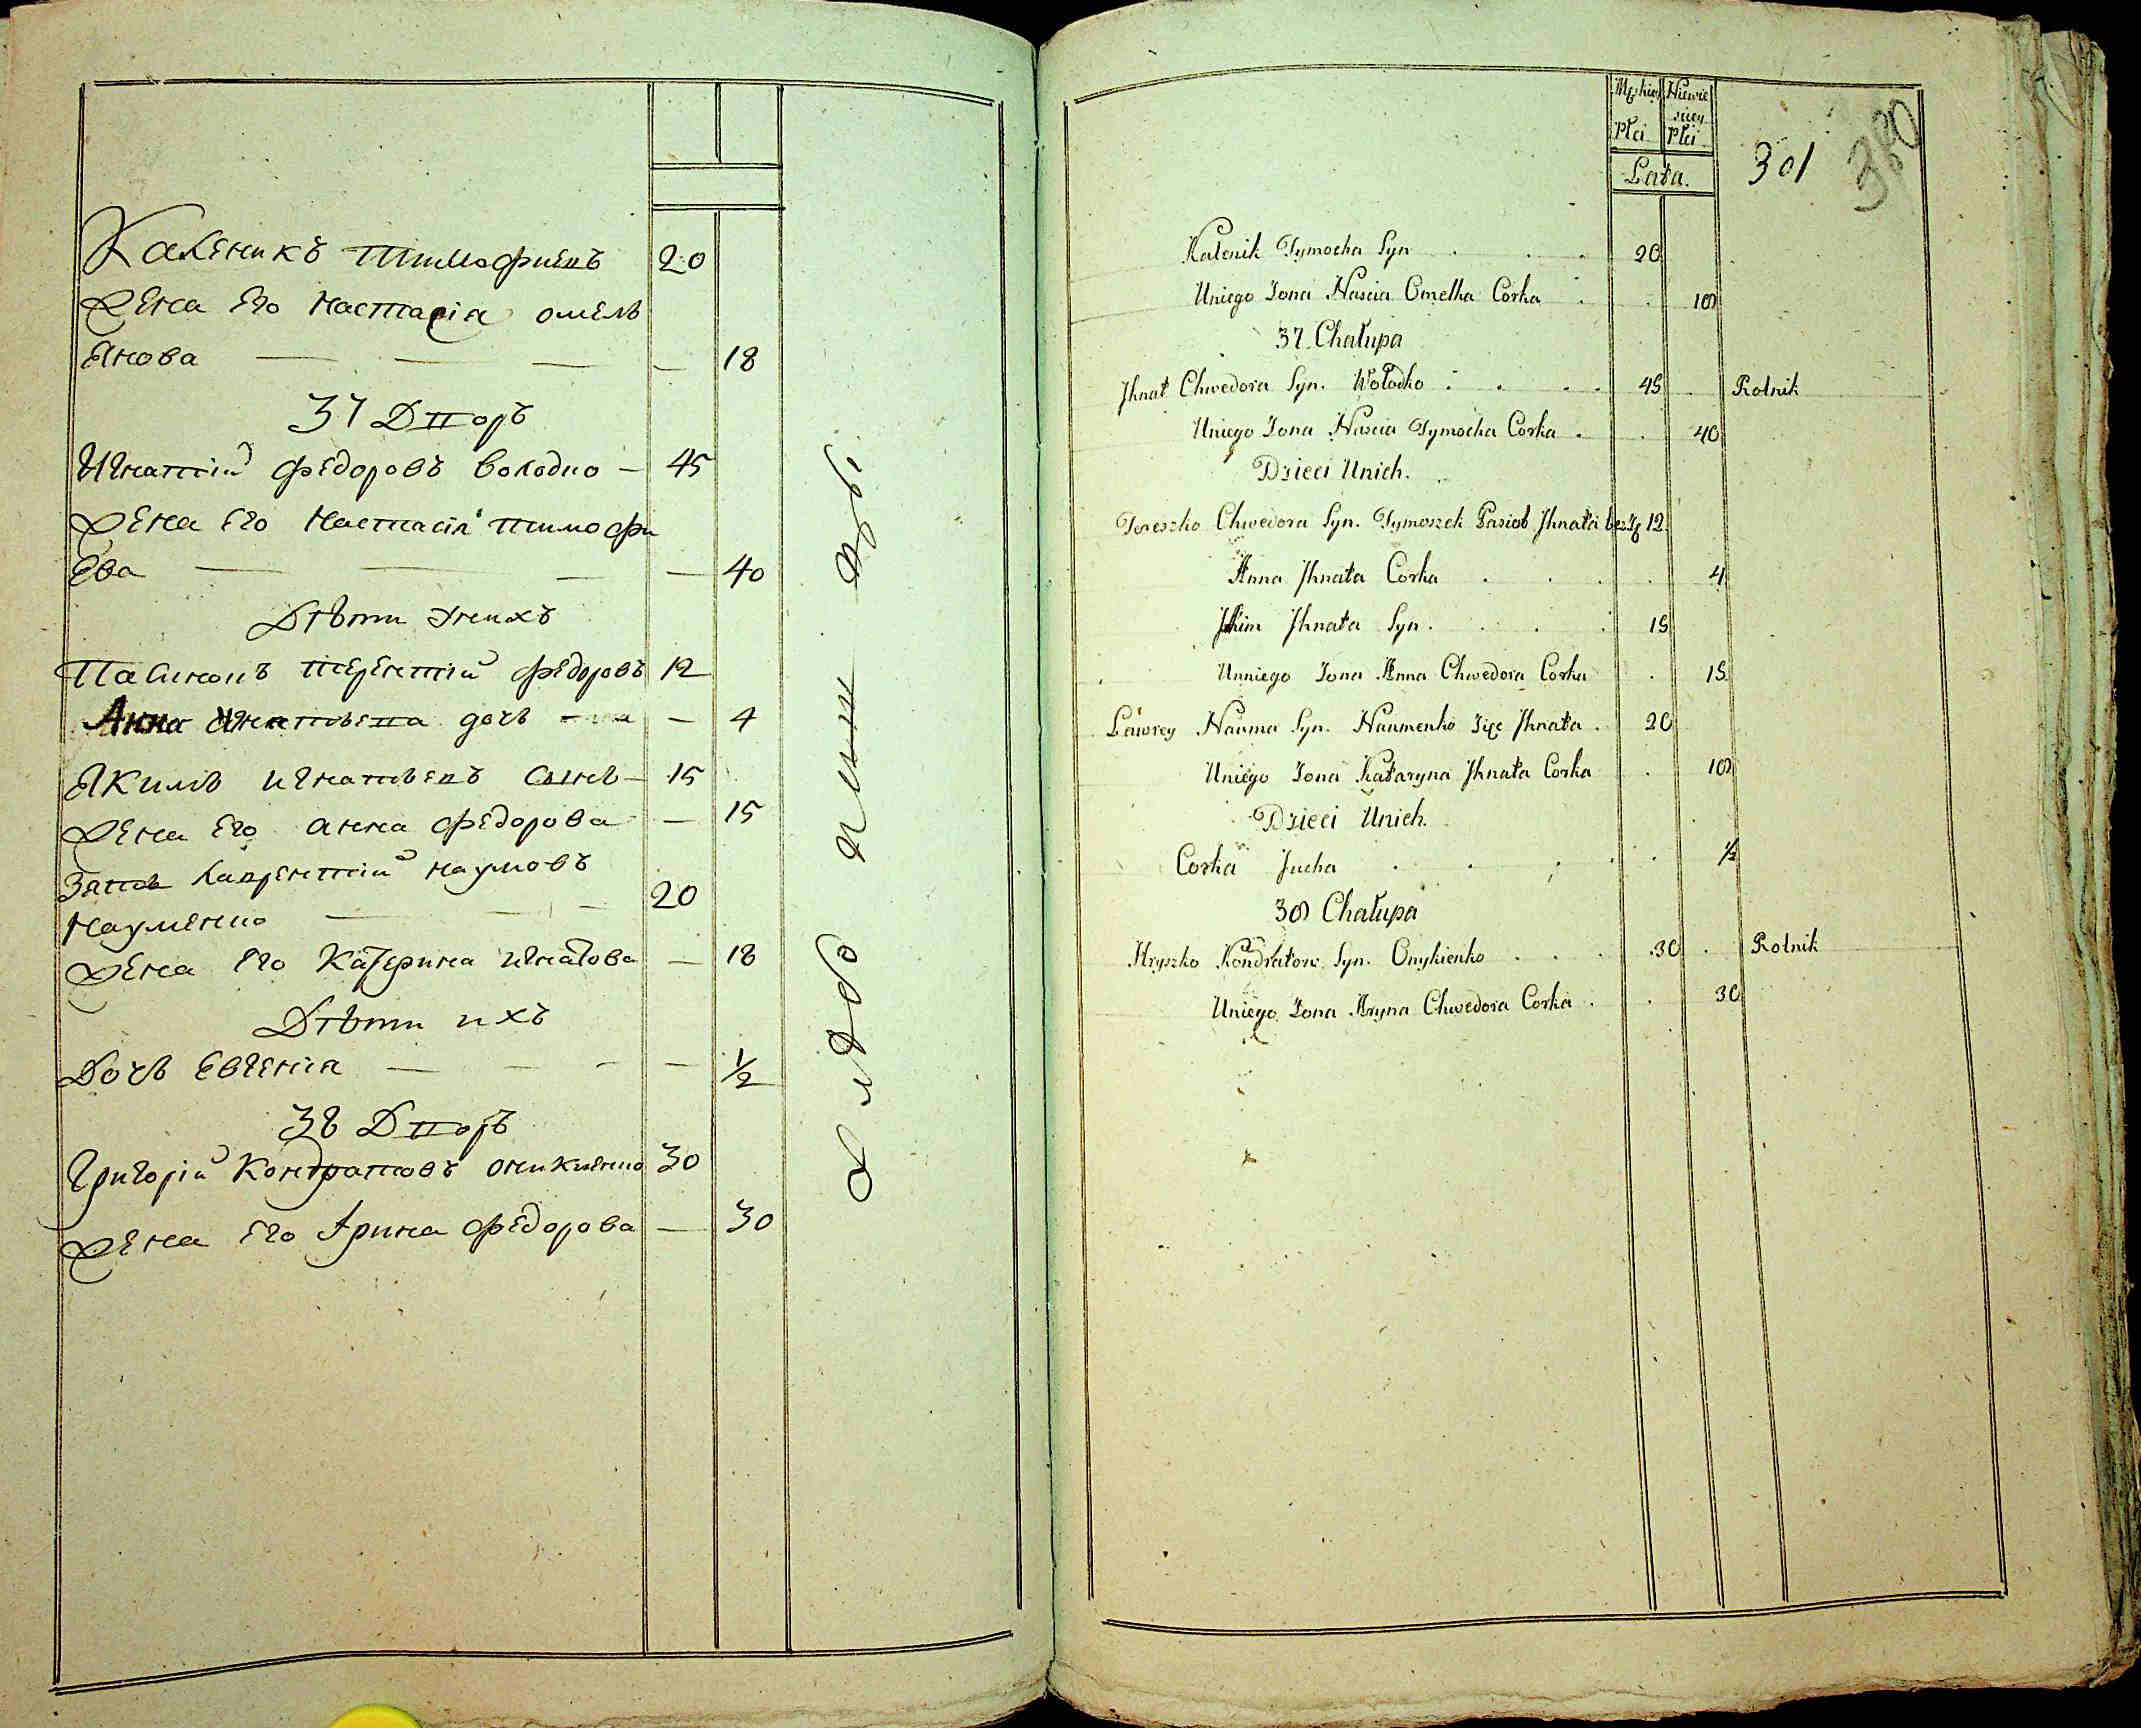 Каленикъ Тимофиевъ 20
Жена Его Настасія омелъ
Янова — — — — 18
37 Дворъ
Игнатій Федоровъ Володко — 45
Жена Его Настасія тимофи
Ева — — — — 40
Дѣти Унихъ
Пасинокъ терентій Федоровъ 12
Анна Игнатьева дочъ — 4
Якимъ Игнатьевъ Сынъ — 15
Жена Его анна Федорова — 15
Зять Лаврентій наумовъ
Науменко — — — 20
Жена Его Катерина Игнатова — 18
Дѣти ихъ
Дочъ Евгенія — — — — 1/2
38 Дворъ
Григорій Кондратовъ оникиенко 30
Жена Его Арина Федорова — 30
Męskiey Płci
Niewieściey Płci
Lata.
301
380
Kalenik Tymocha Syn . . . 20
Uniego Żona Nascia Omelka Corka . . 18
37 Chałupa
Jhnat Chwedora Syn. Wołodko . . . . 45 . Rolnik
Uniego Żona Nascia Tymocha Corka . . 40
Dzieci Unich.
Tereszko Chwedora Syn. Tymoszek Pasiob Jhnata 12
Anna Jhnata Corka . . . . 4
Jakim Jhnata Syn . . . . 15
Unniego Żona Anna Chwedora Corka . 15
Ławrey Nauma Syn. Naumenko Zięć Jhnata . 20
Uniego Żona Kataryna Jhnata Corka . 18
Dzieci Unich.
Corka Jucha . . . . . 1/2
38 Chałupa
Hryszko Kondratow Syn. Onykienko . . . . 30 . Rolnik
Uniego Żona Aryna Chwedora Corka . . 30